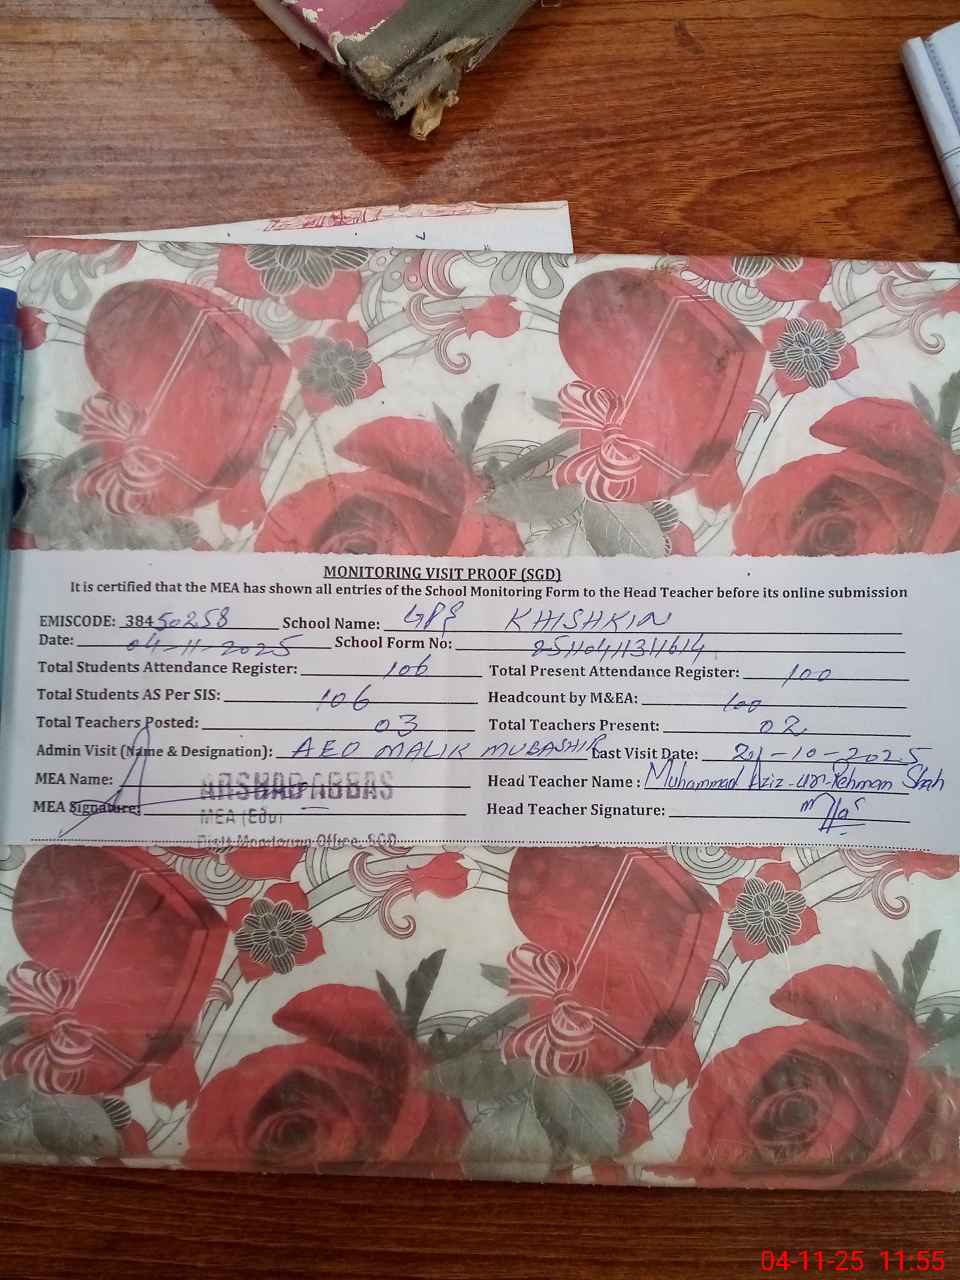 MONITORING VISIT PROOF (SGD)
It is certified that the MEA has shown all entries of the School Monitoring Form to the Head Teacher before its online submission
EMISCODE: 38450258 School Name: GPS KHISHKIN
Date: 04-11-2025 School Form No:
Total Students Attendance Register: 106 Total Present Attendance Register: 100
Total Students AS Per SIS: 106 Headcount by M&EA: 100
Total Teachers Posted: 03 Total Teachers Present: 02
Admin Visit (Name & Designation): AEO MALIK MUBASHIR Last Visit Date: 21-10-2025
MEA Name: ARSHAD ABBAS Head Teacher Name : Muhammad Aziz-ur-Rehman Shah
MEA Signature: MEA (Edu) Head Teacher Signature:
Distt: Monitoring Office, SGD
04-11-25 11:55